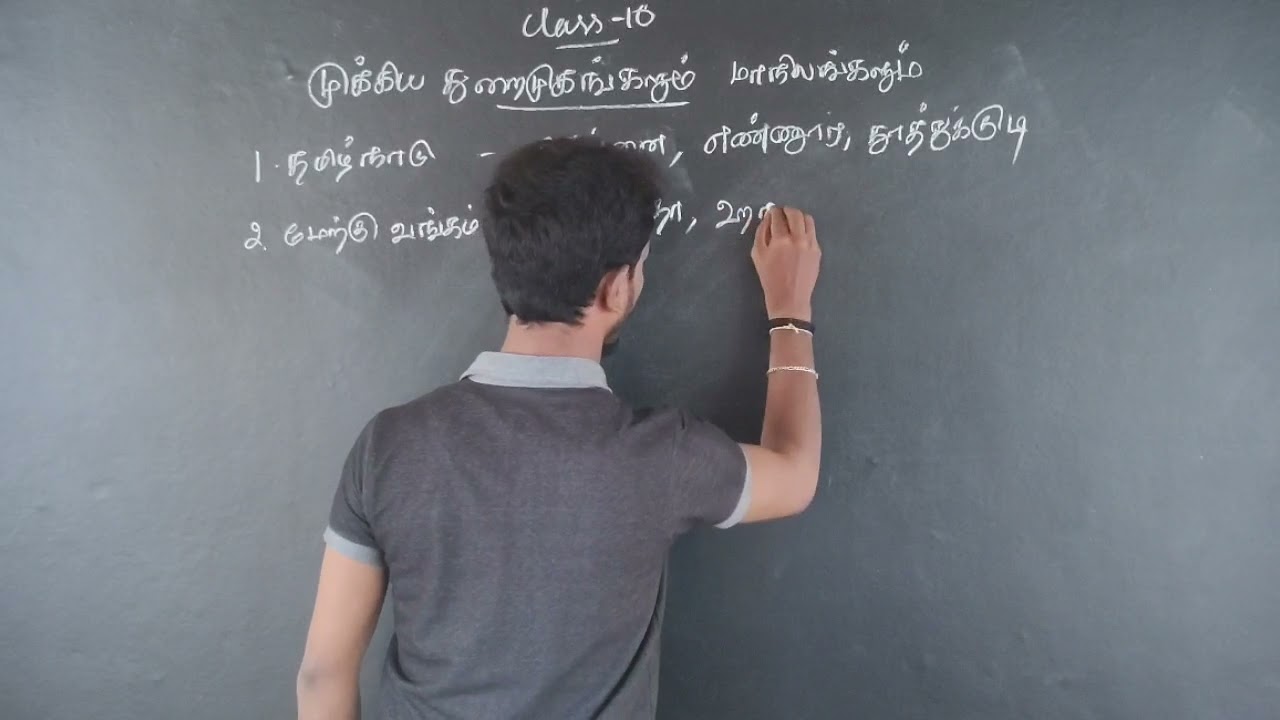 Class-10
முக்கிய துறைமுகங்களும் மாநிலங்களும்
1. தமிழ்நாடு - எண்ணூர், தூத்துக்குடி
2. மேற்கு வங்கம்